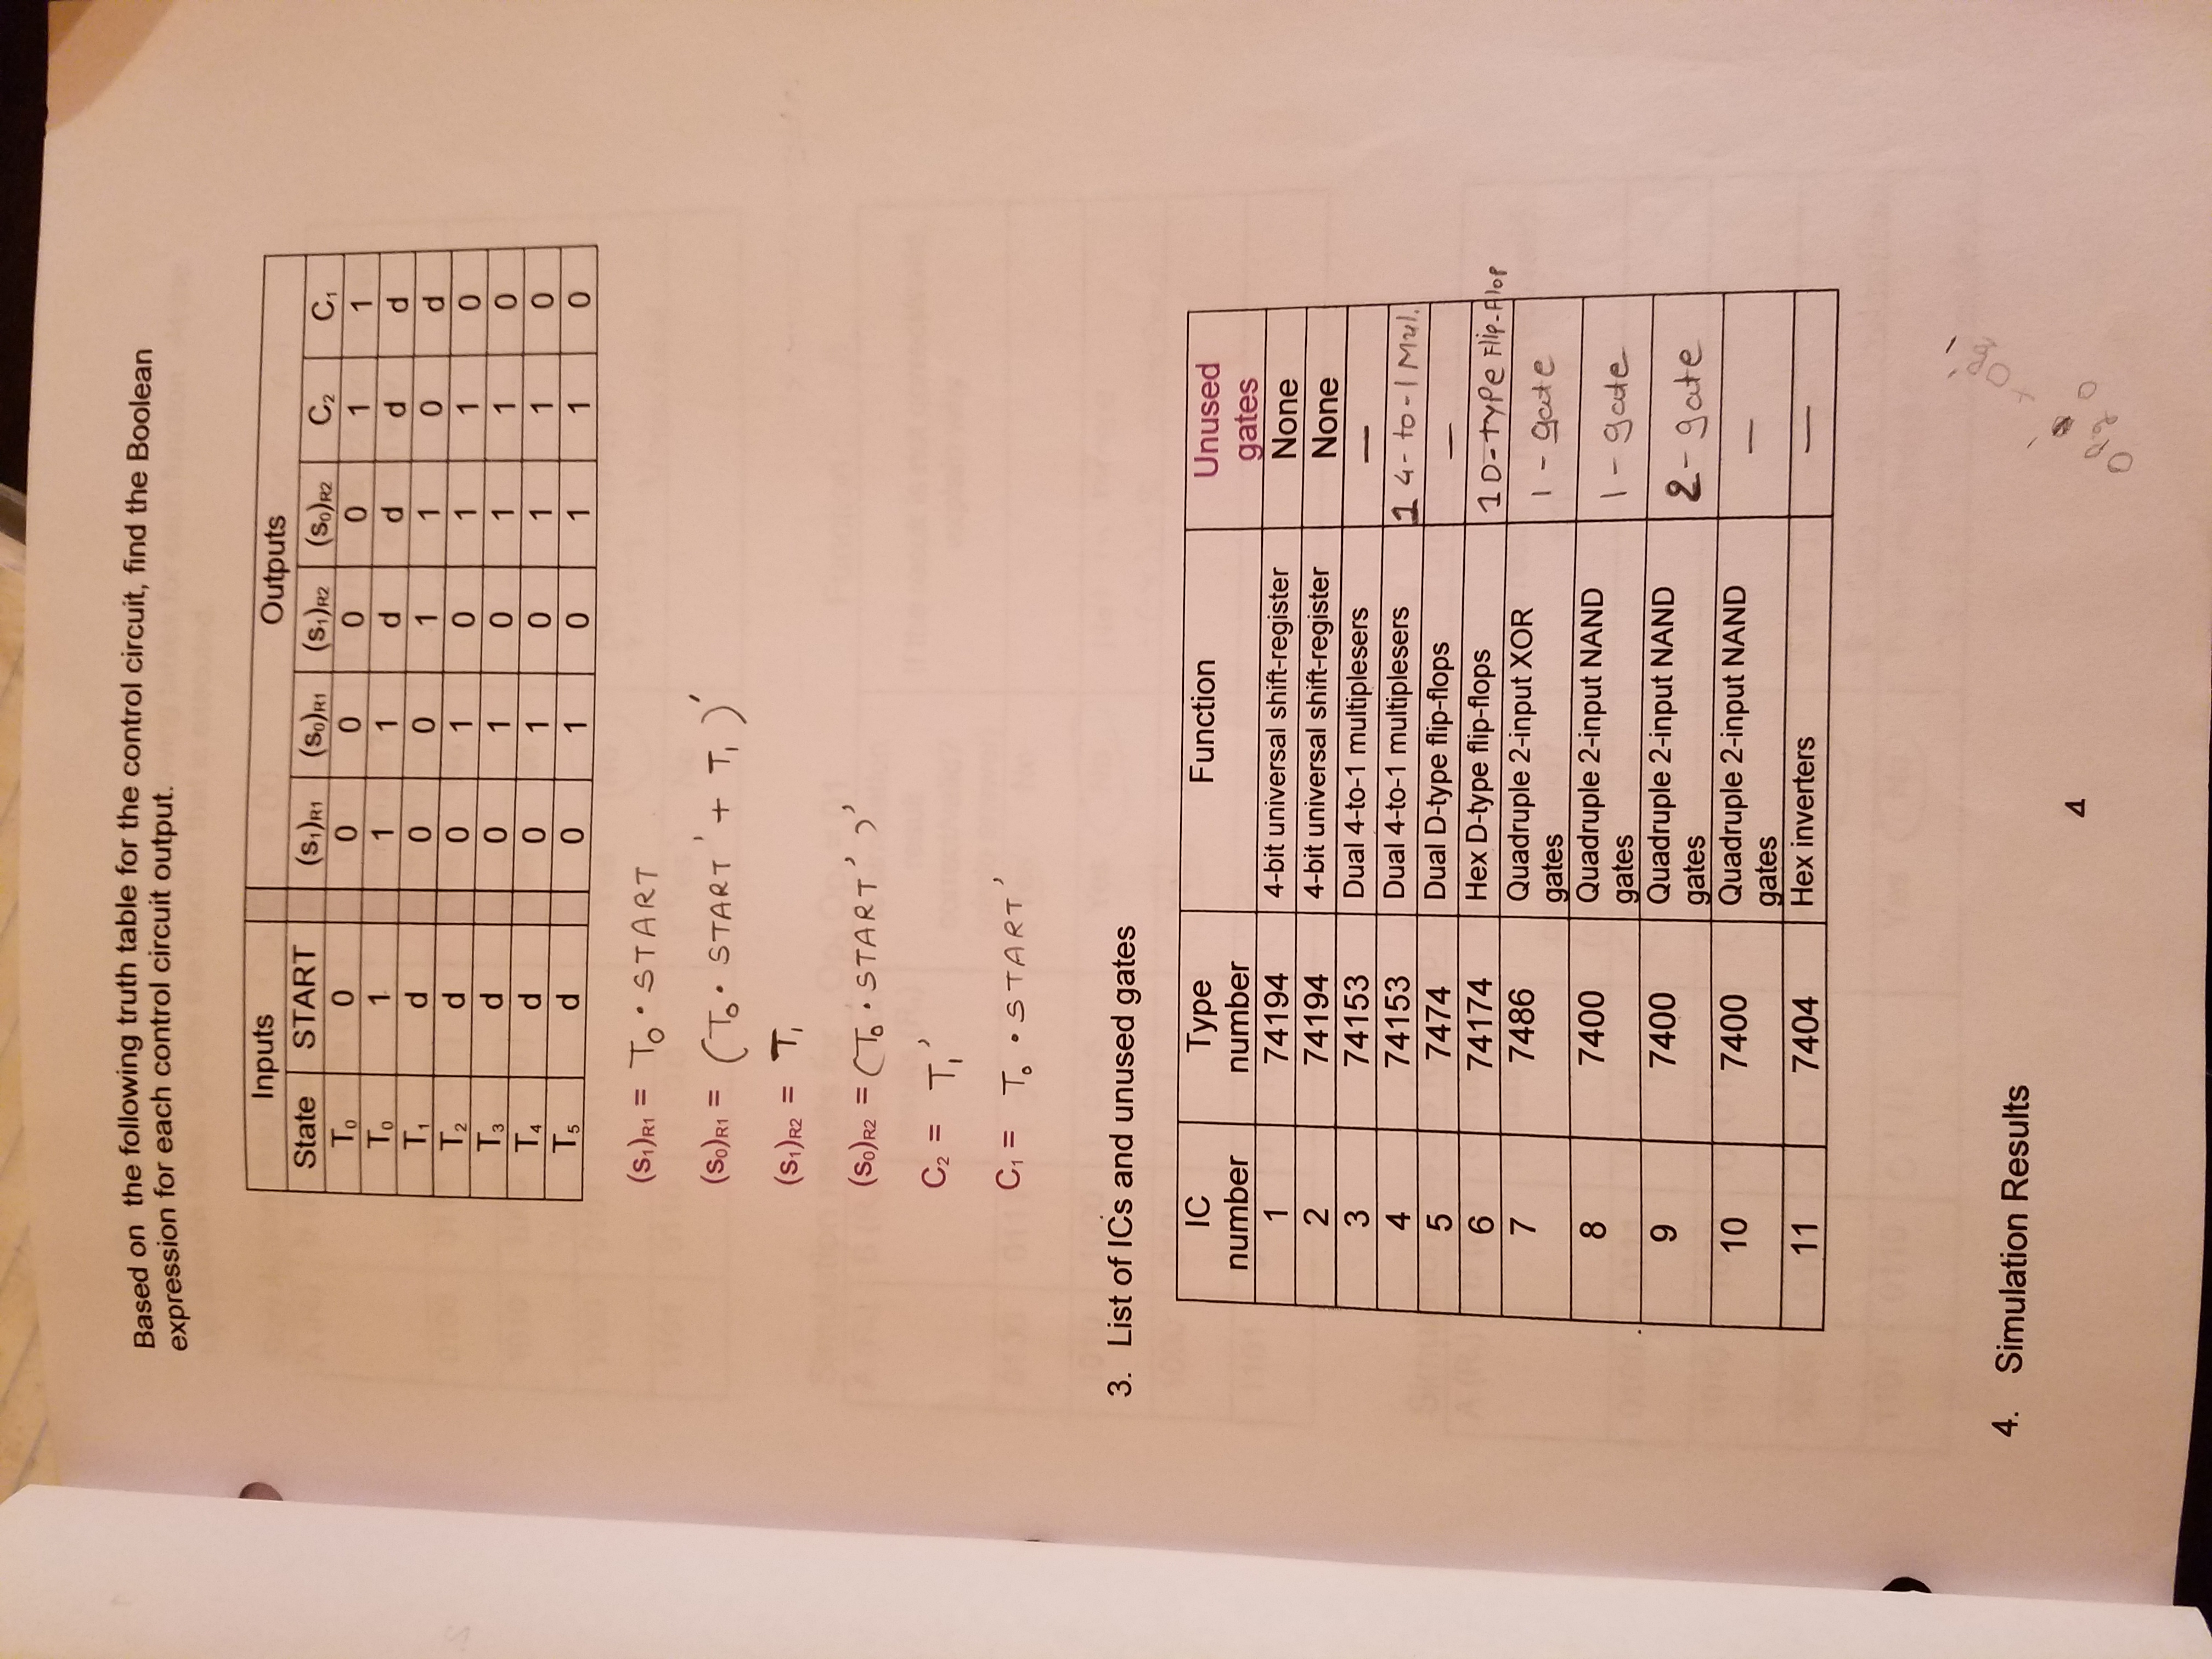 Based on the following truth table for the control circuit, find the Boolean
expression for each control circuit output.
Inputs Outputs
State START (S₁)R1 (S₀)R1 (S₁)R2 (S₀)R2 C₂ C₁
T₀ 0 0 0 0 0 1 1
T₀ 1 1 1 d d d d
T₁ d 0 0 1 1 0 d
T₂ d 0 1 0 1 1 0
T₃ d 0 1 0 1 1 0
T₄ d 0 1 0 1 1 0
T₅ d 0 1 0 1 1 0
(S₁)R1 = T₀ · START
(S₀)R1 = (T₀ · START' + T₁)'
(S₁)R2 = T₁
(S₀)R2 = (T₀ · START')'
C₂ = T₁'
C₁ = T₀ · START'
3. List of ICs and unused gates
IC number Type number Function Unused gates
1 74194 4-bit universal shift-register None
2 74194 4-bit universal shift-register None
3 74153 Dual 4-to-1 multiplesers —
4 74153 Dual 4-to-1 multiplesers 1 4-to-1 Mul.
5 7474 Dual D-type flip-flops —
6 74174 Hex D-type flip-flops 1 D-type Flip-Flop
7 7486 Quadruple 2-input XOR gates 1 - gate
8 7400 Quadruple 2-input NAND gates 1 - gate
9 7400 Quadruple 2-input NAND gates 2 - gate
10 7400 Quadruple 2-input NAND gates —
11 7404 Hex inverters —
4. Simulation Results
4